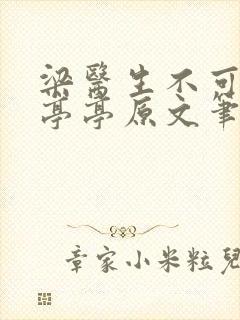 梁醫生不可
亭亭原文筆
章家小米粒兒